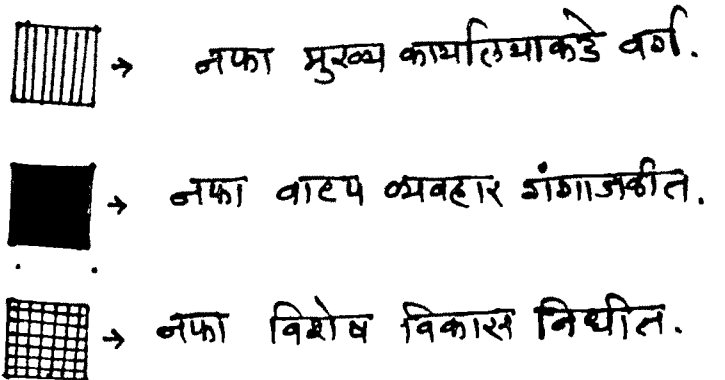 नफा मुख्य कार्यालयाकडे वर्ग.
नफा वाटप व्यवहार गंगाजळीत.
नफा विशेष विकास निधीत.